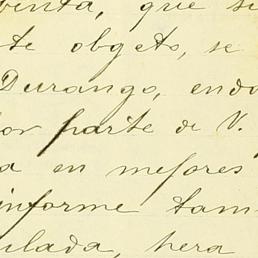 venta, que si
te obgeto, se
Durango, endo
por parte de V.
a en mejores
informe tam
ulada, hera